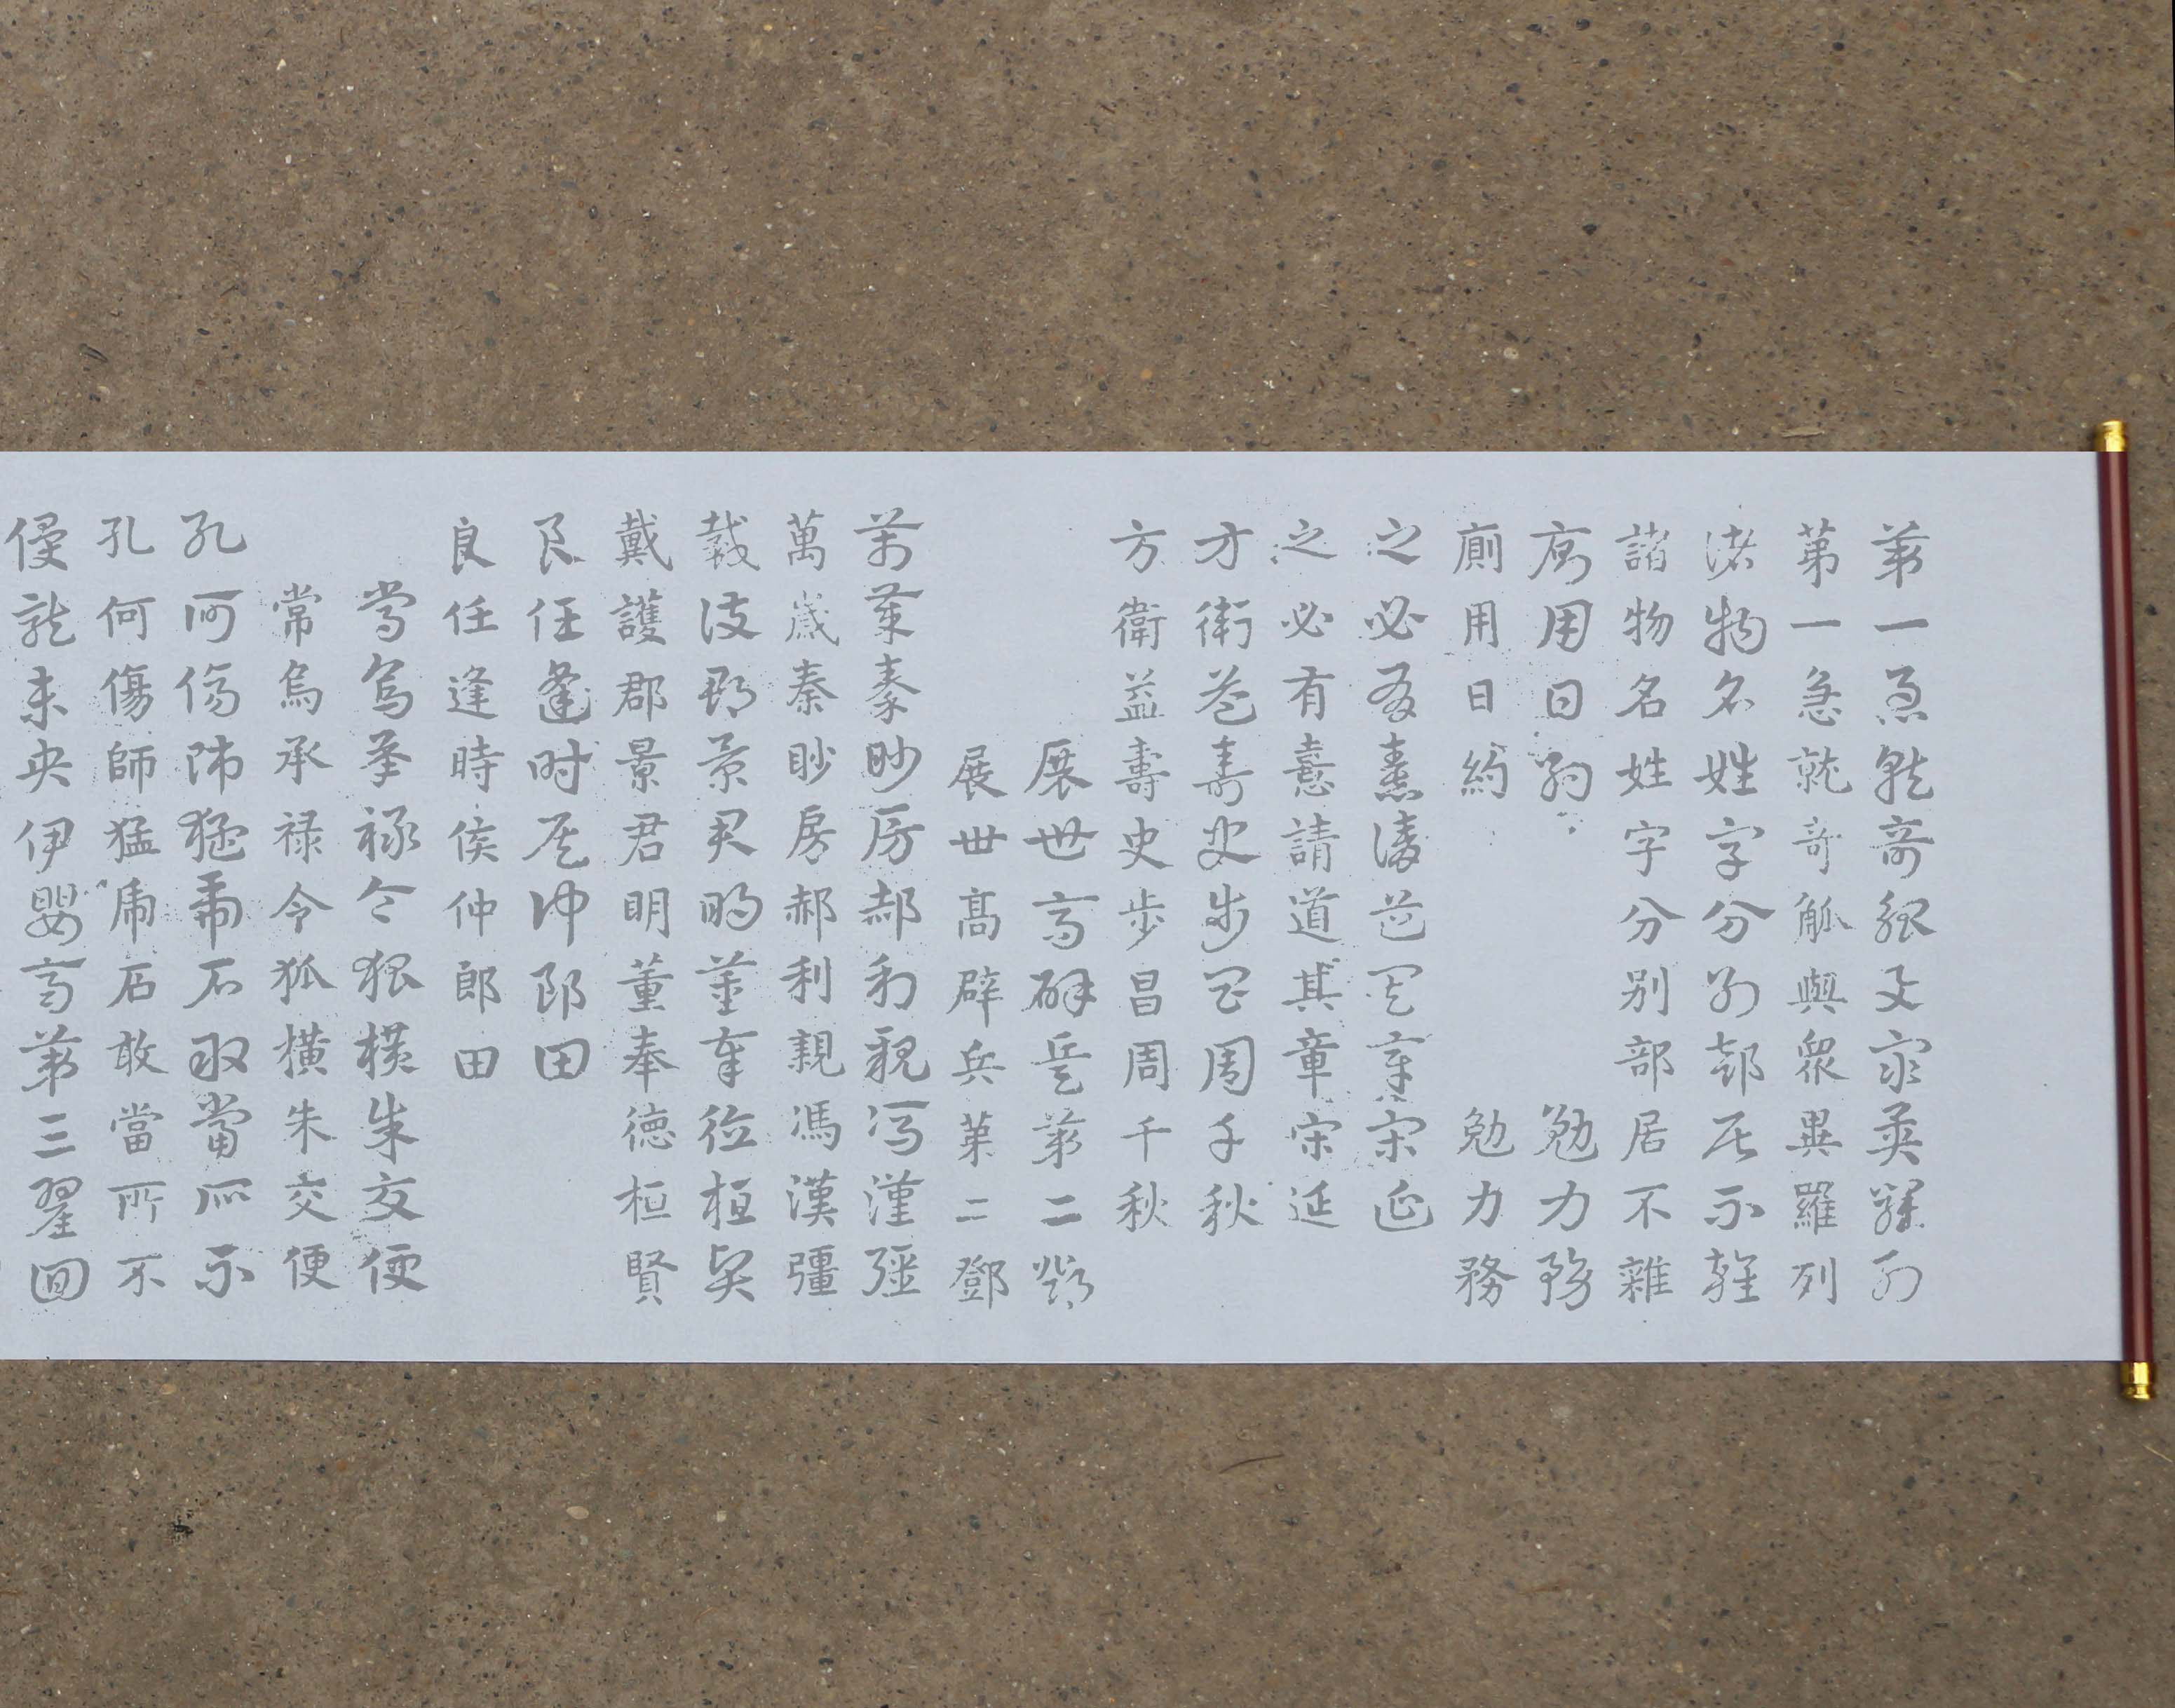 第一急就奇觚與衆異羅列
第一急就奇觚與衆異羅列
諸物名姓字分别部居不雜
諸物名姓字分别部居不雜
廁用日約 勉力務
廁用日約 勉力務
之必有憙請道其章宋延
之必有憙請道其章宋延
方衛益壽史步昌周千秋
方衛益壽史步昌周千秋
展世高辟兵第二鄧
展世高辟兵第二鄧
萬歲秦眇房郝利親馮漢彊
萬歲秦眇房郝利親馮漢彊
戴護郡景君明董奉德桓賢
戴護郡景君明董奉德桓賢
良任逢時侯仲郎田
良任逢時侯仲郎田
常烏承禄令狐横朱交便
常烏承禄令狐横朱交便
孔何傷師猛虎石敢當所不
孔何傷師猛虎石敢當所不
侵龍未央伊嬰齊第三翟回